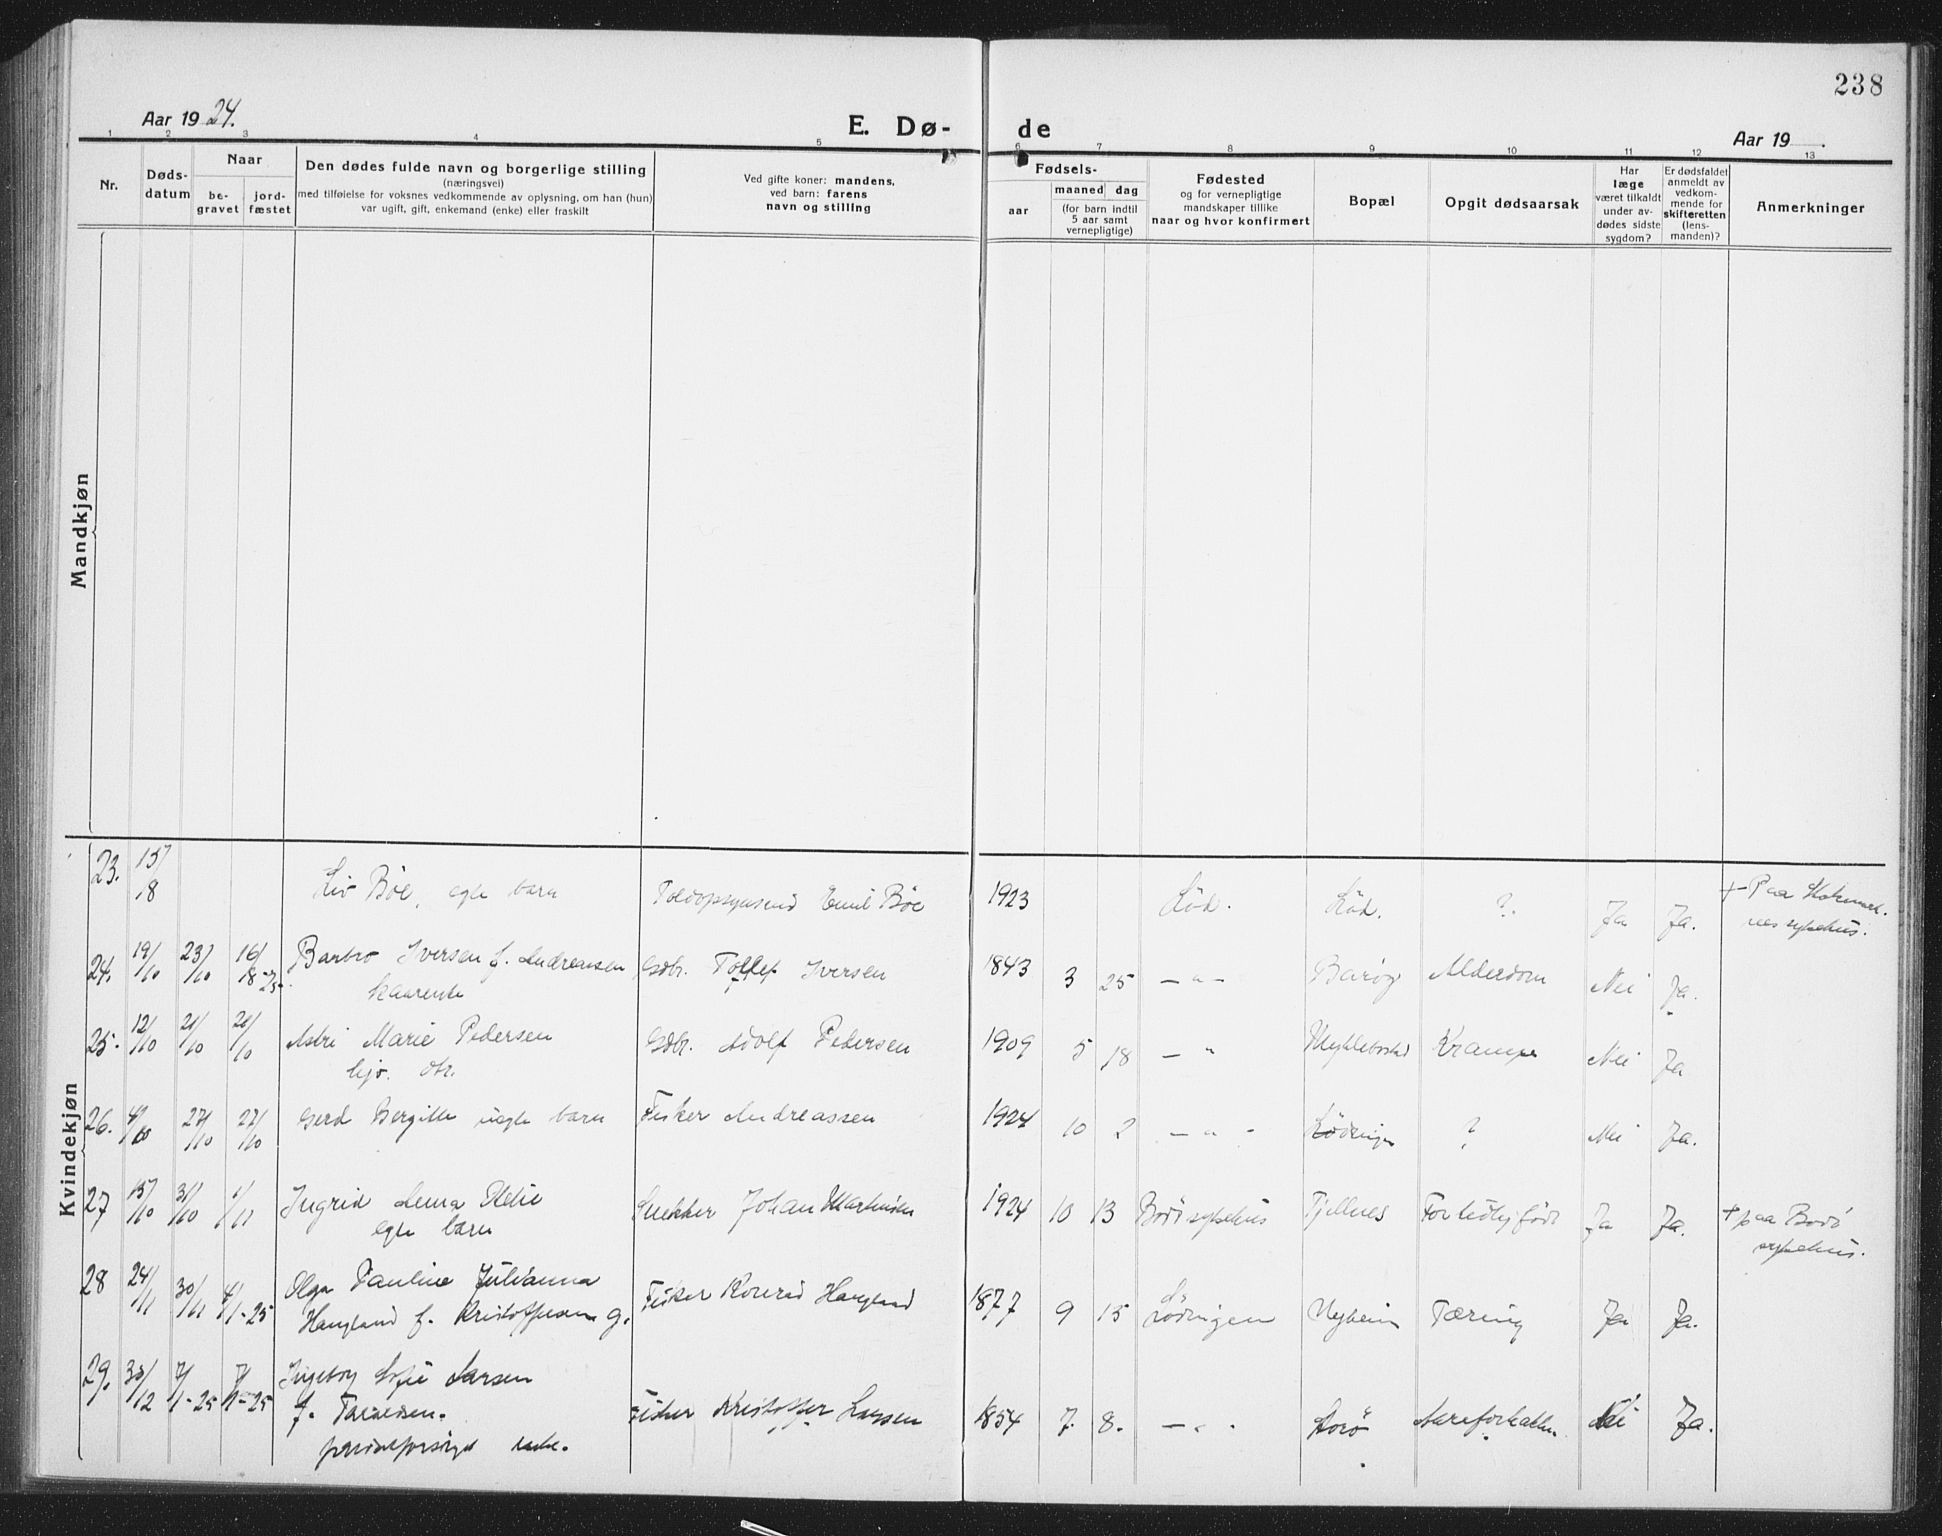 238
Aar 1924.
E. Dø-
de
Aar 19 .
1 2 3 4 5 6 7 8 9 10 11 12 13
Nr.
Døds-
datum
Naar
be-
gravet
jord-
fæstet
Den dødes fulde navn og borgerlige stilling
(næringsvei)
med tilføielse for voksnes vedkommende av oplysning, om han (hun)
var ugift, gift, enkemand (enke) eller fraskilt
Ved gifte koner: mandens,
ved barn: farens
navn og stilling
Fødsels-
aar
maaned dag
(for barn indtil
5 aar samt
vernepligtige)
Fødested
og for vernepligtige
mandskaper tillike
naar og hvor konfirmert
Bopæl
Opgit dødsaarsak
Har
læge
været tilkaldt
under av-
dødes sidste
sygdom?
Er dødsfaldet
anmeldt av
vedkom-
mende for
skifteretten
(lens-
manden)?
Anmerkninger
Mandkjøn
Kvindekjøn
23. 15/18 Liv Böe, egte barn Emil Böe 1923 Löd. Löd. ? Ja Ja. + Paa
24. 19/10 23/10 16/18-25. Barbro Iversen f. Andreassen Gdbr. Tollef Iversen 1843 3 25 - " - Barøy Alderdom Nei Ja.
25. 12/10 21/10 21/10 Astri Marie Pedersen Gdbr. Adolf Pedersen 1909 5 18 - " Myklebostad Krampe Nei Ja
hjv. dtr.
26. 4/10 27/10 27/10 Gerd Bergitte uegte barn Fisker Andreassen 1924 10 2 - " - Lödingen ? Nei Ja.
27 15/10 31/10 1/11 Ingrid Lema egte barn Snekker Johan Martinsen 1924 10 13 Bodö sykehus Tjellnes For tidlig född Ja Ja. + paa Bodö
sykehus.
28 24/11 30/11 4/1-25 Olga Pauline Julianna Fisker Konrad Haugland 1877 9 15 Lödingen Nyheim Tæring Ja Ja.
Haugland f. Kristoffersen g.
29. 30/12 7/1-25 7/1-25 Ingeborg Sofie Larsen Fisker Kristoffer Larssen 1854 7. 8. - " - Aareforkalkn. Nei Ja.
f.
enke.